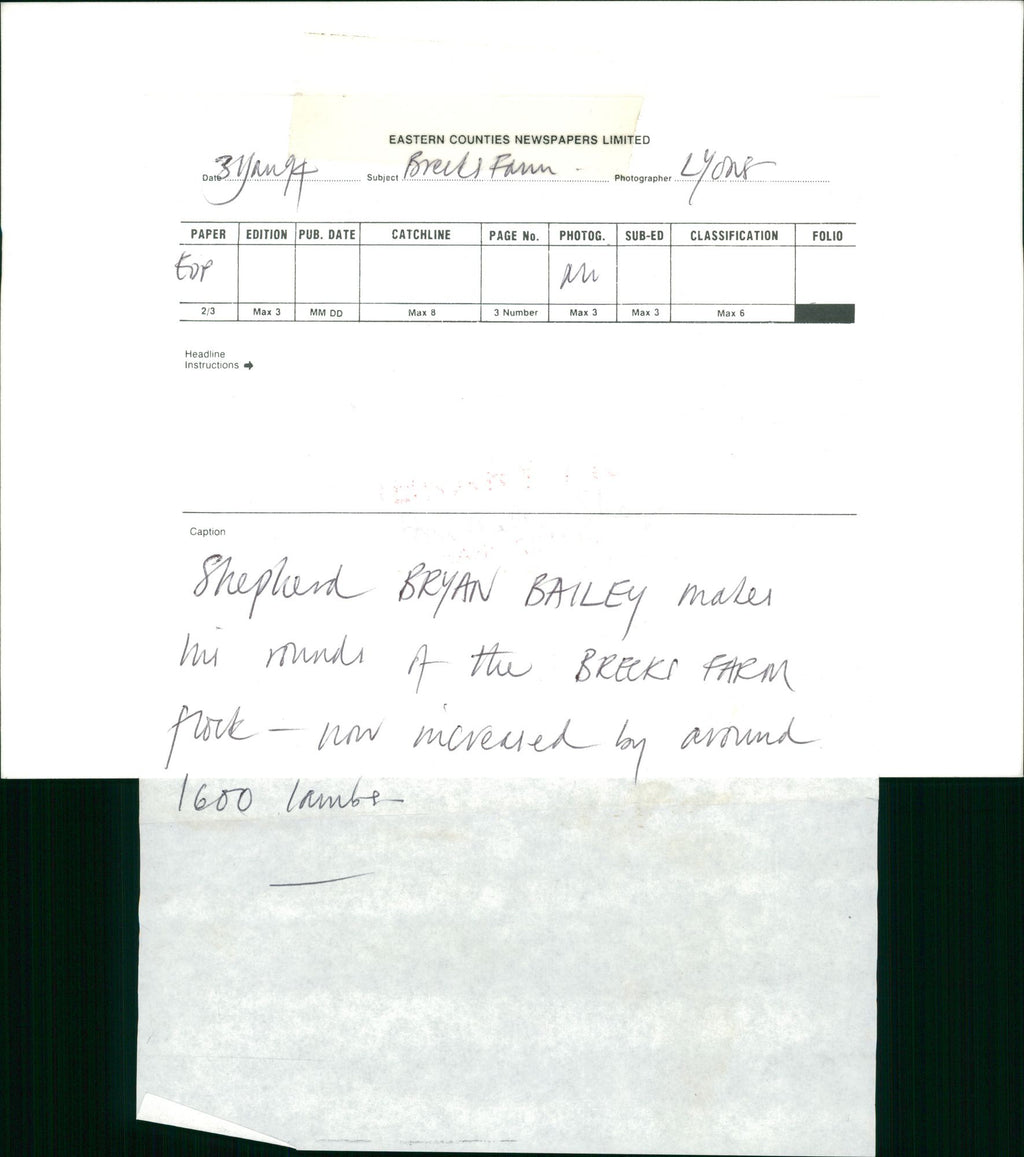 EASTERN COUNTIES NEWSPAPERS LIMITED
Date Subject Brecks Farm. Photographer LYONS
PAPER EDITION PUB. DATE CATCHLINE PAGE No. PHOTOG. SUB-ED CLASSIFICATION FOLIO
EDP
2/3 Max 3 MM DD Max 8 3 Number Max 3 Max 3 Max 6
Headline
Instructions
Caption
Shepherd BRYAN BAILEY makes
his rounds of the BRECKS FARM
flock — now increased by around
1600 lambs